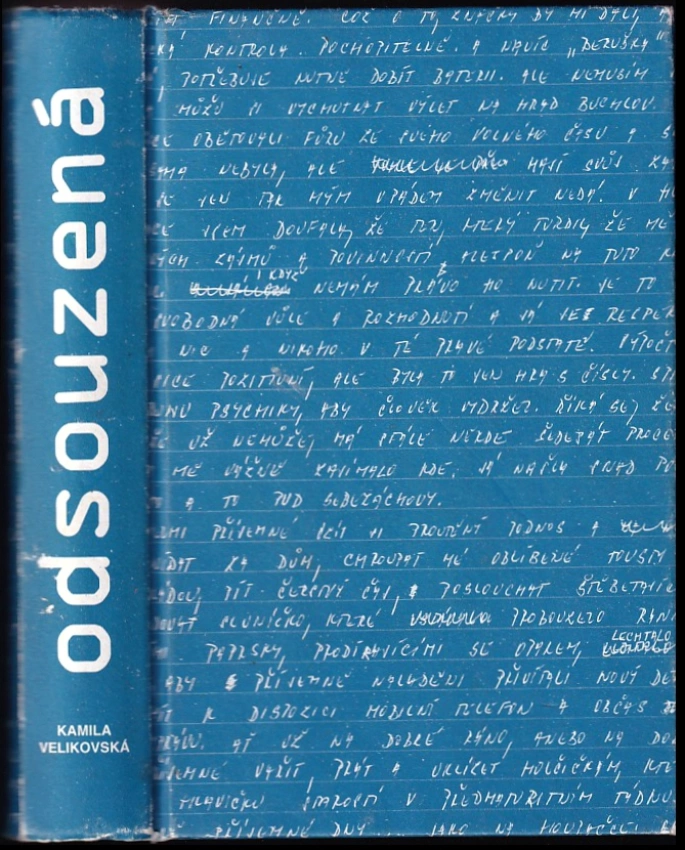 odsouzená
KAMILA
VELIKOVSKÁ
FINANČNĚ. COŽ O TO, ZNÁČKY BY MI DALI,
KONTROLA. POCHOPITELNĚ. A NAVÍC „BERUŠKA"
POTŘEBUJE NUTNĚ DOBÍT BATERII. ALE NEMUSÍM
MŮŽU SI VYCHUTNAT VÝLET NA HRAD BUCHLOV.
OBĚTOVALI FŮRU ZE SVÉHO VOLNÉHO ČASU A
NEBYLA, ALE MAJÍ SVŮJ
JEN TAK MÝM VPÁDEM ZMĚNIT NEDÁ. V
VŠEM DOUFALA, ŽE TEN, KTERÝ TVRDIL, ŽE MĚ
ZÁJMŮ A POVINNOSTÍ, ALESPOŇ NA TUTO
I KDYŽ
NEMÁM PRÁVO HO NUTIT. JE TO
SVOBODNÁ VŮLE A ROZHODNUTÍ A JÁ JEJ RESPEK
NIC A NIKOHO V TÉ PRAVÉ PODSTATĚ.
POZITIVNÍ, ALE BYLA TO JEN HRA S ČÍSLY.
PSYCHIKY, ABY ČLOVĚK VYDRŽEL. ŘÍKÁ SE, ŽE
UŽ NEMŮŽE, MÁ STÁLE NĚKDE ŠEDESÁT PROCE
MĚ VÁŽNĚ ZAJÍMALO KDE. JÁ NAŠLA SNAD
A TO PUD SEBEZÁCHOVY.
PŘÍJEMNÉ VZÍT SI PROUTĚNÝ PODNOS A
ZA DŮM, CHROUPAT MÉ OBLÍBENÉ TOUSTY
PÍT ČERSTVÝ ČAJ, POSLOUCHAT ŠTĚBETÁNÍ
SLUNÍČKO, KTERÉ PROBOUZELO
PAPRSKY, PRODÍRAJÍCÍMI SE OPAREM, LECHTALO
ABY PŘÍJEMNĚ NALADĚNI PŘIVÍTALI NOVÝ
K DISPOZICI MOBILNÍ TELEFON A OBČAS
AŤ UŽ NA DOBRÉ RÁNO, ANEBO NA
VAŘIT, PRÁT A UKLÍZET HOLČIČKÁM,
HLAVIČKU STAROSTÍ V PŘEDMATURITNÍM TÝDNU.
PŘÍJEMNÉ DNY ... JAKO NA HOUPAČCE!